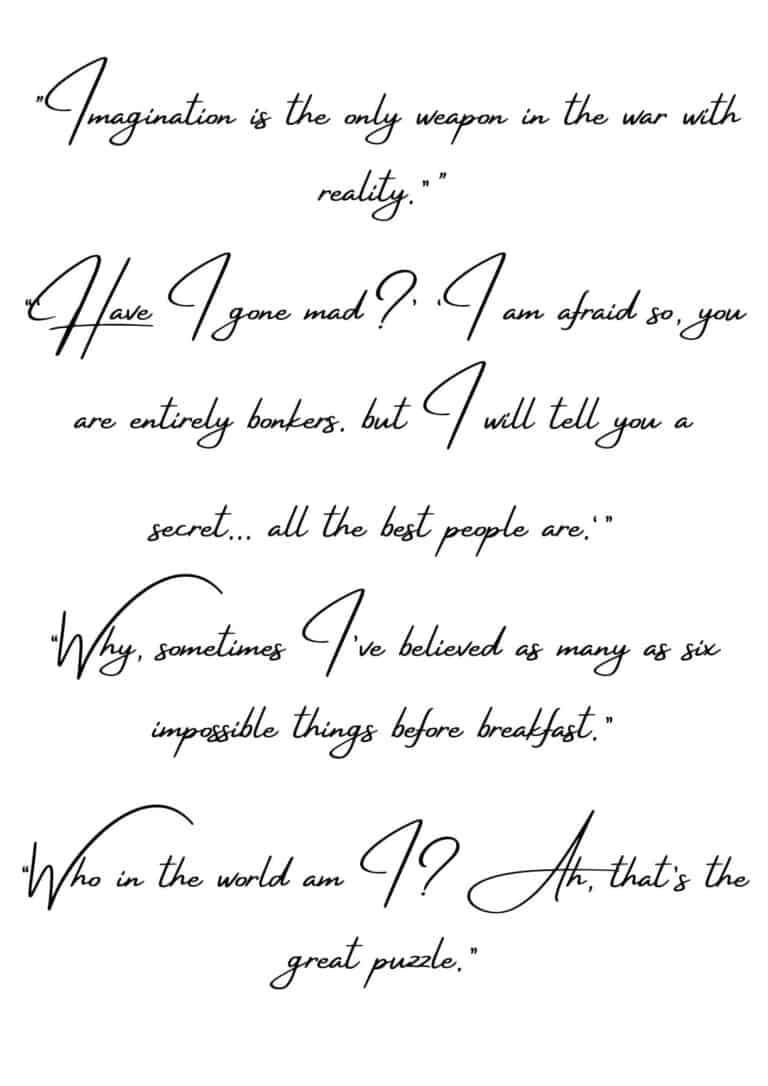 "Imagination is the only weapon in the war with
reality." "
"Have I gone mad?' 'I am afraid so, you
are entirely bonkers. but I will tell you a
secret... all the best people are.' "
"Why, sometimes I've believed as many as six
impossible things before breakfast."
"Who in the world am I? Ah, that's the
great puzzle."